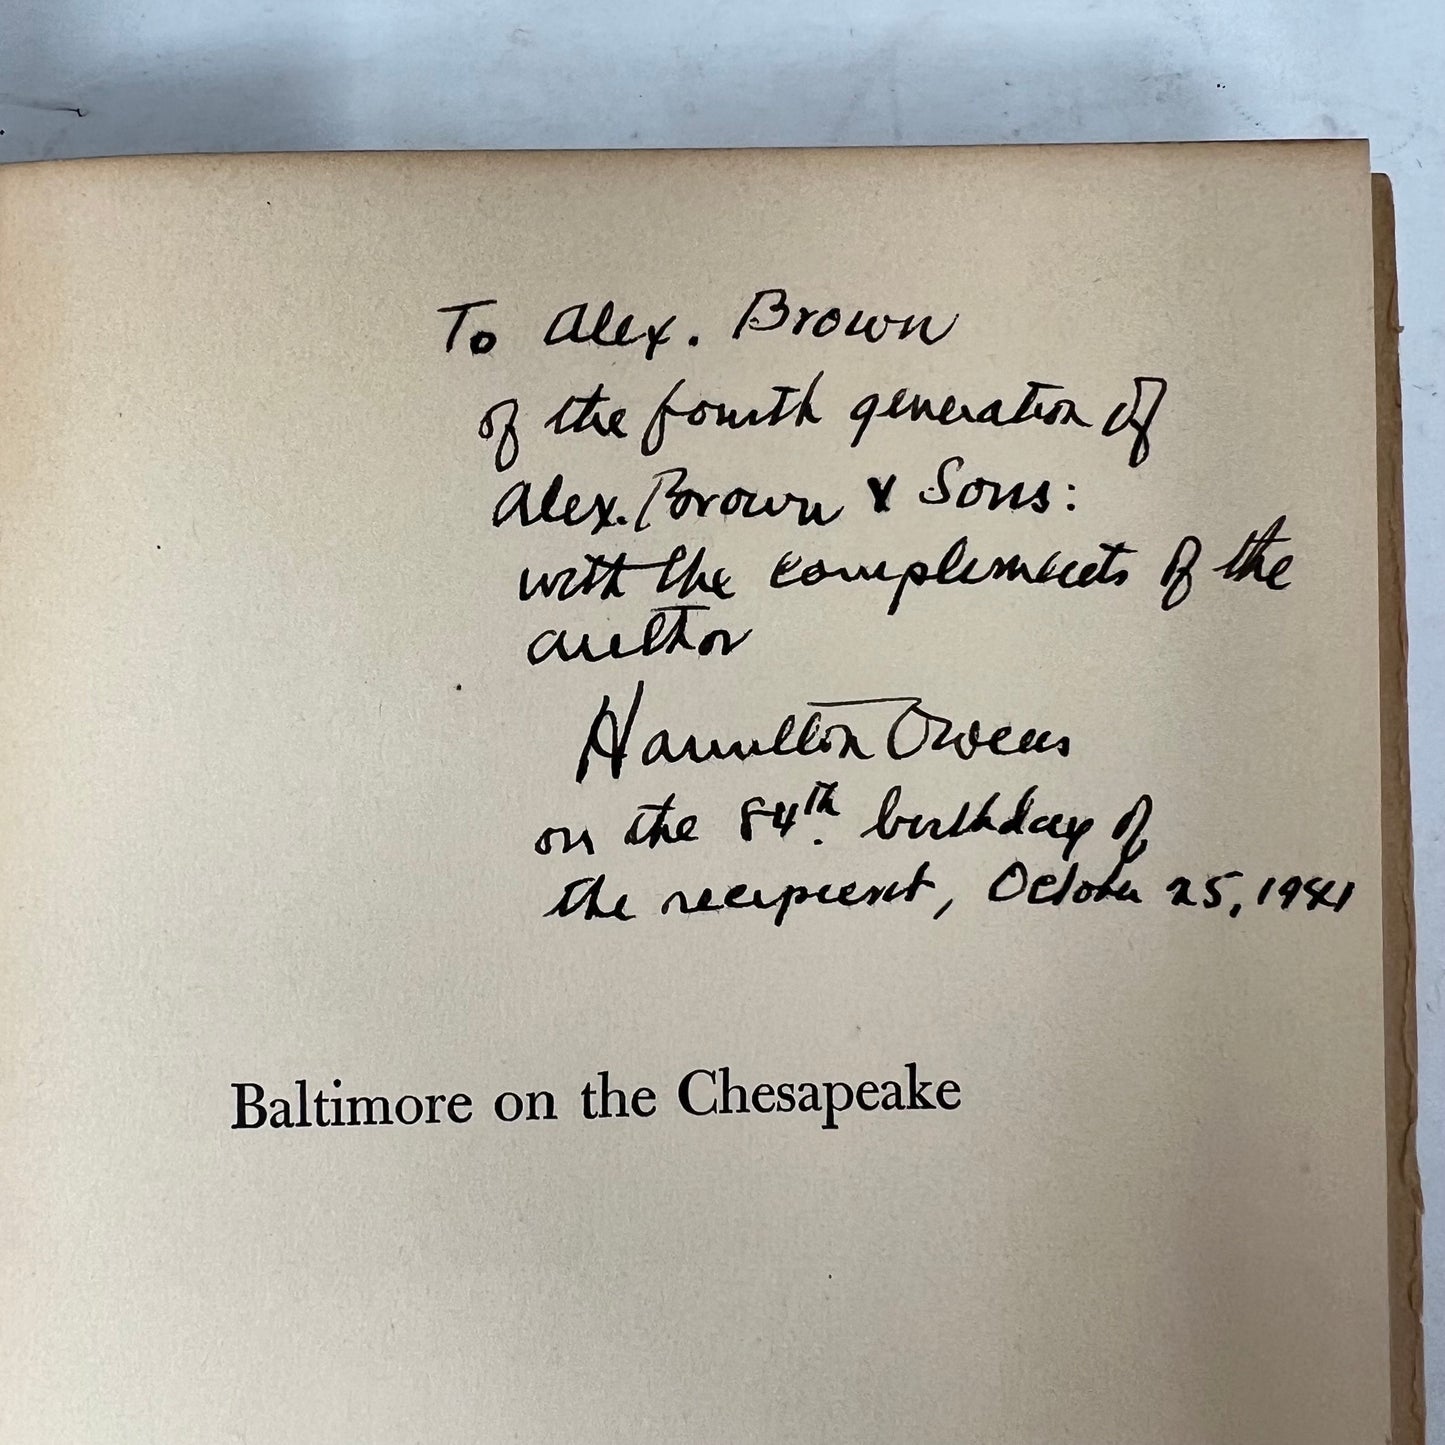 To Alex. Brown
of the fourth generation of
Alex. Brown & Sons:
with the compliments of the
author
Hamilton Owens
on the 84th. birthday of
the recipient, October 25, 1941
Baltimore on the Chesapeake